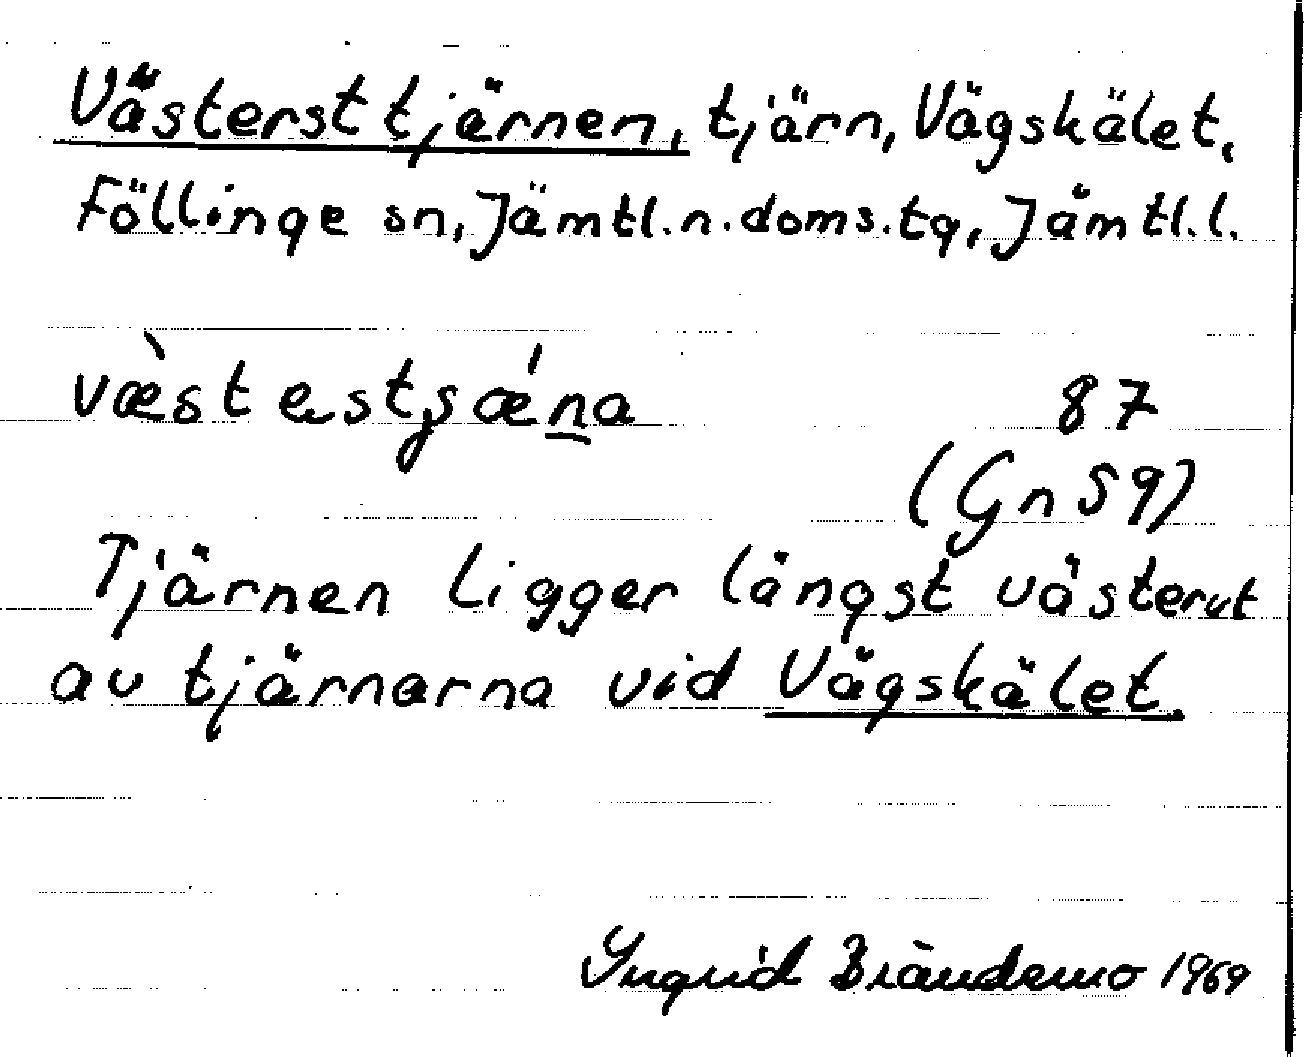 Västersttjärnen, tjärn, Vägskälet,
Föllinge sn, Jämtl.n.doms.tg, Jämtl.l.
væ̀stestʂǽna 87
(Gn 59)
Tjärnen ligger längst västerut
av tjärnarna vid Vägskälet.
Ingrid Brändemo 1969